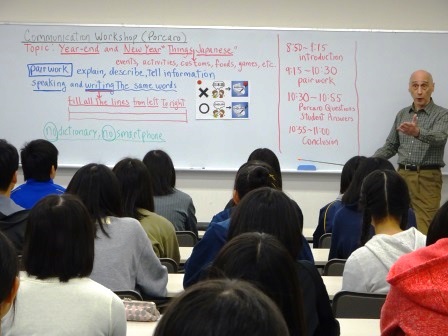 Communication Workshop (Porcaro)
Topic: Year-end and New Year "Things Japanese"
events, activities, customs, foods, games, etc.
pair work explain, describe, tell information
speaking and writing the same words
fill all the lines from left to right
no dictionary, no smartphone
8:50-9:15
introduction
9:15-10:30
pairwork
10:30-10:55
Porcaro Questions
Student Answers
10:55-11:00
Conclusion